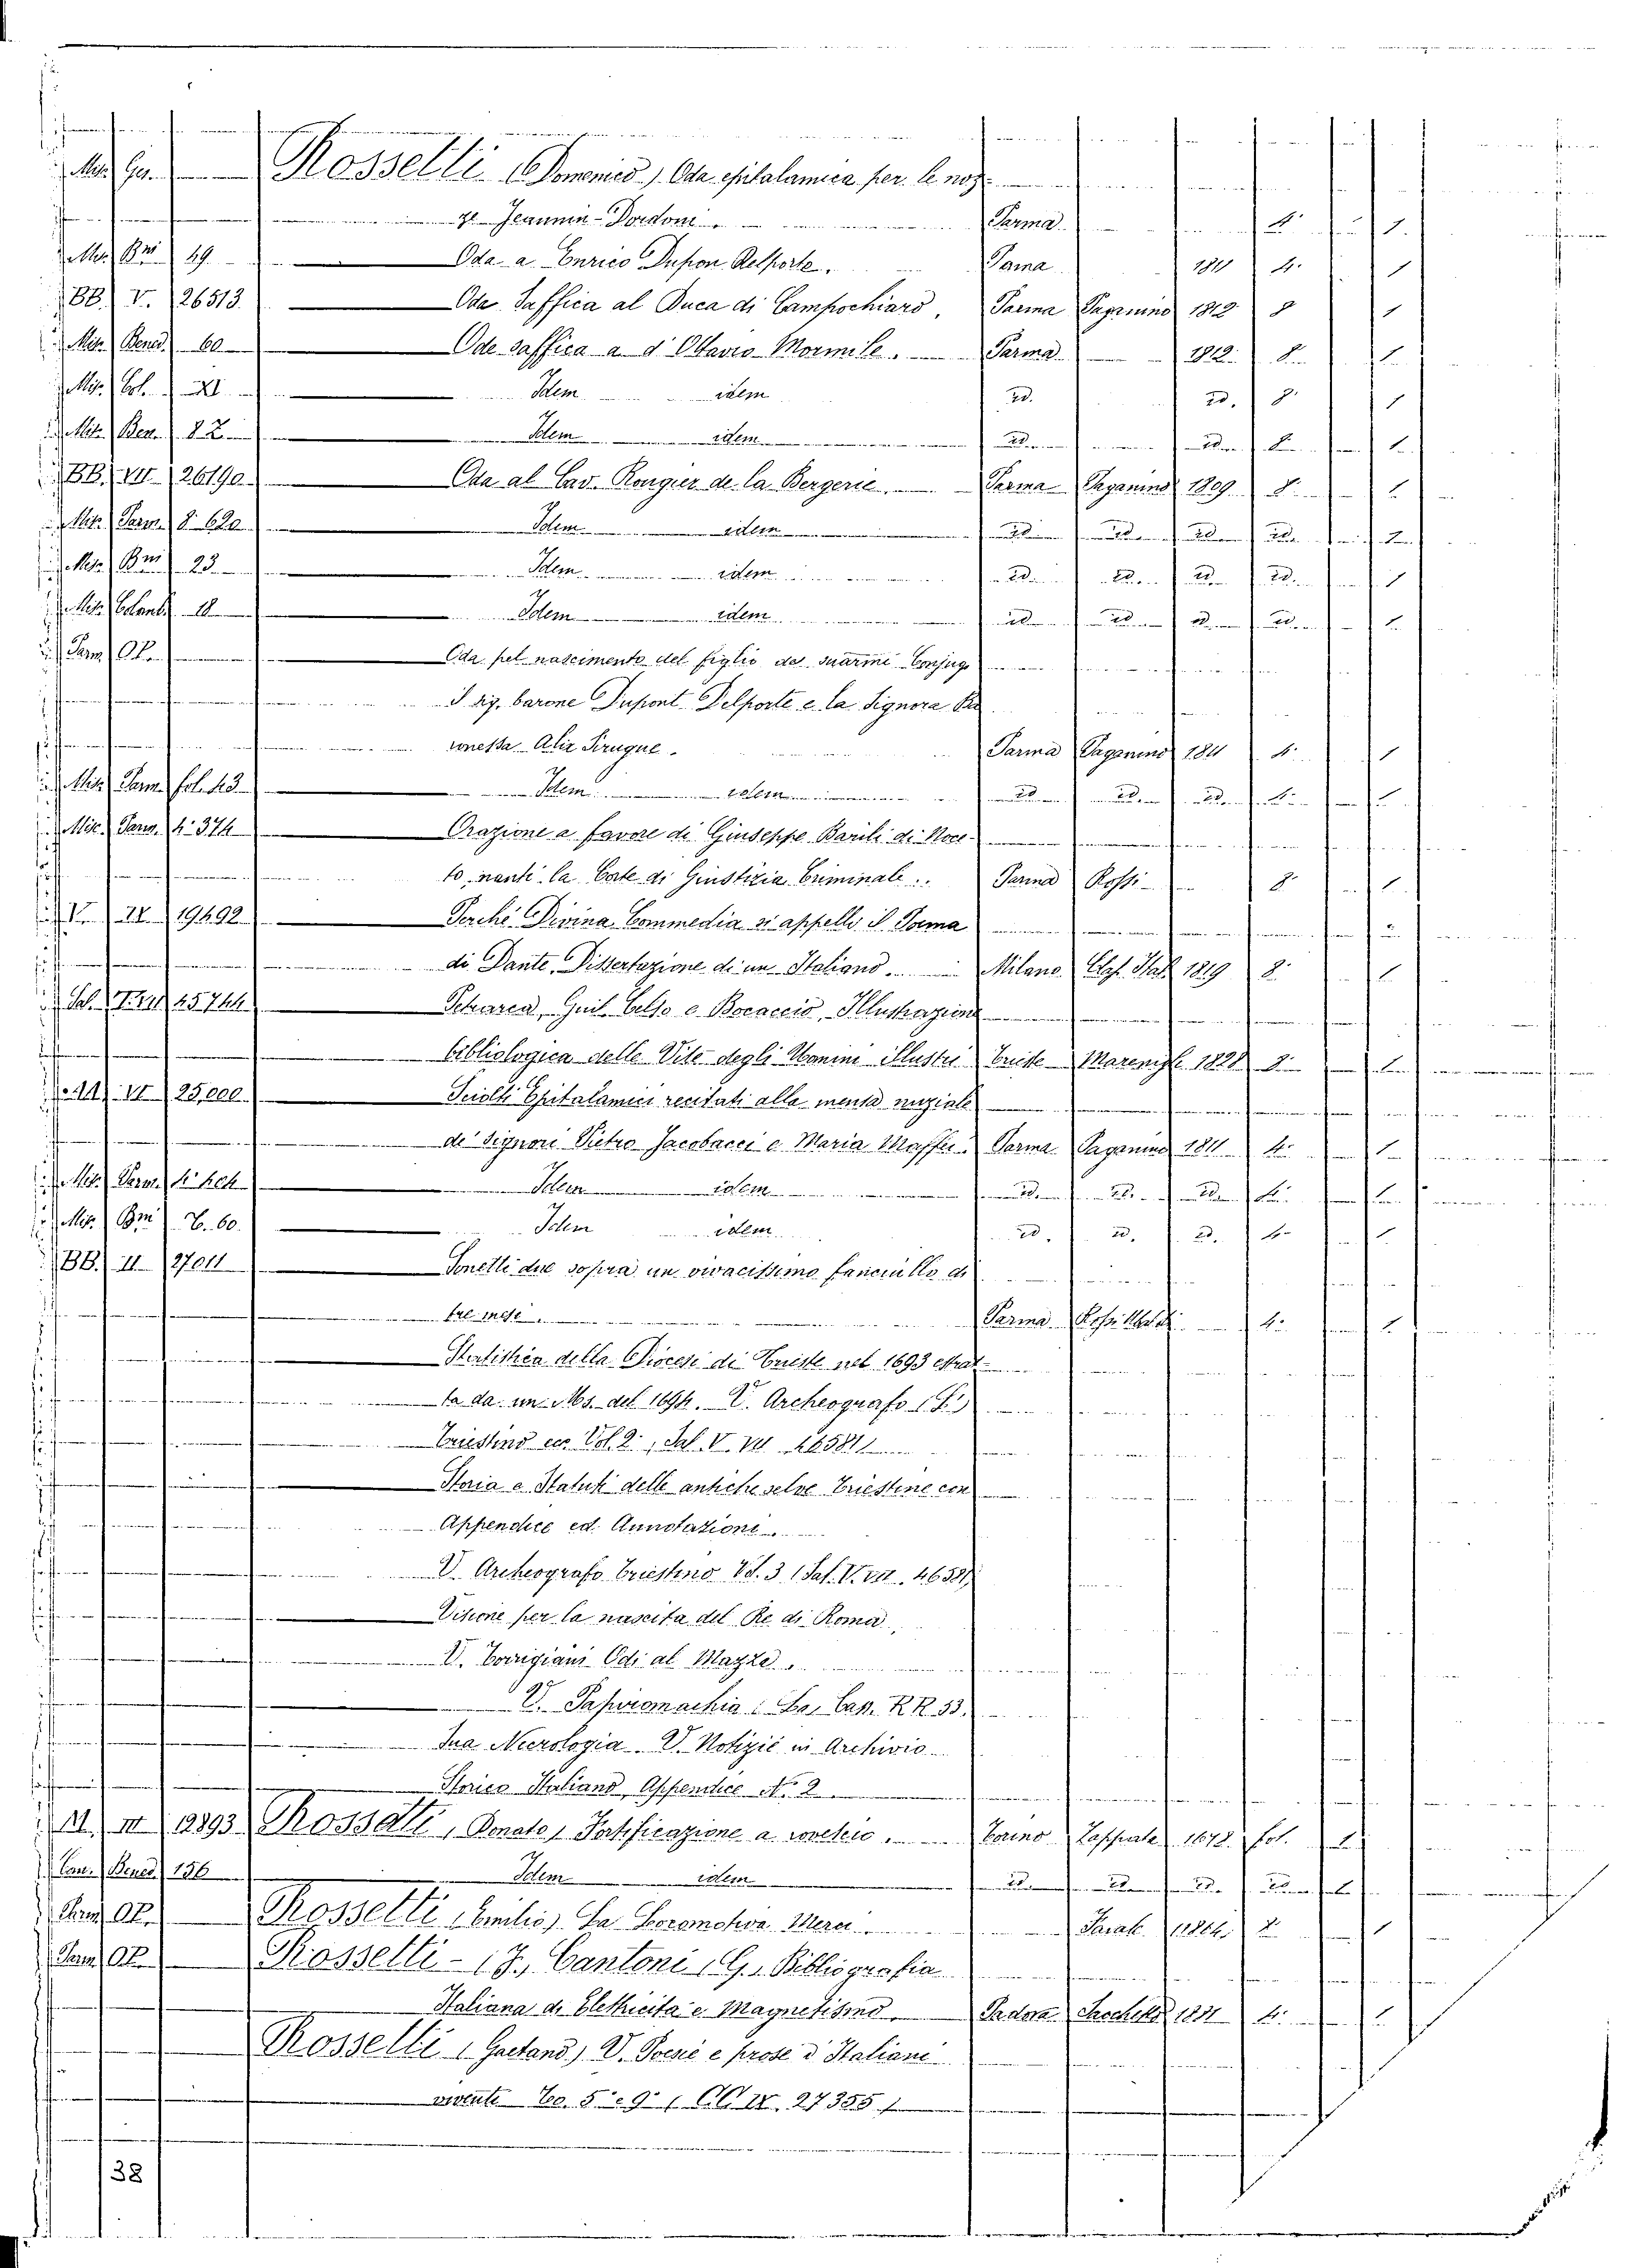 Mis. Ger. Rossetti (Domenico) Oda epitalamica per le noz
ze Jeannin-Dordoni. Parma 4. 1.
Mis. Bni 49 Oda a Enrico Dupon Delporte. Parma 1811 4. 1
BB. V. 26513 Oda Saffica al Duca di Campochiaro. Parma Paganino 1812 8 1
Mis. Bened. 60 Ode saffica a d' Ottavio Mormile. Parma 1812. 8. 1
Mis. Col. XI Idem idem id. id. 8. 1
Mis. Ben. 82 Idem idem id. id. 8. 1
BB. VII 26190 Oda al Cav. Rougier de la Bergerie. Parma Paganino 1809 8. 1
Mis. Parm. 8º 620 Idem idem id. id. id. id. 1
Mis. Bni 23 Idem idem id. id. id. id. 1
Mis. Colomb. 18 Idem idem id. id. id. id. 1
Parm. OP. Oda pel nascimento del figlio de' Conjugi
I sig. barone Dupont Delporte e la Signora Ba
ronessa Alix Pruguel. Parma Paganino 1811 4. 1
Mis. Parm. fol. 43 Idem idem id. id. id. 4. 1
Mis. Parm. 4º 374 Orazione a favore di Giuseppe Barili di Noce-
to, nanti la Corte di Giustizia Criminale. Parma Rossi 8. 1
V. IX 19492 Perchè Divina Commedia si appelli il Poema
di Dante, Dissertazione di un Italiano. Milano Tip. Ital. 1819 8. 1
Sal. V. VII 45744 Petrarca, Giul. Celso e Boccaccio, Illustrazione
bibliologica delle Vite degli Uomini Illustri Trieste Marenigh 1828 8. 1
AA VI 25,000 Sciolti Epitalamici recitati alla mensa nuziale
de' Signori Pietro Jacobacci e Maria Maffei. Parma Paganino 1811 4. 1
Mis. Parm. 4º Idem idem id. id. id. 4. 1
Mis. Bni T. 60. Idem idem id. id. id. 4. 1
BB. II 27011 Sonetti due sopra un vivacissimo fanciullo di
tre mesi. Parma Rossi Ubaldi 4. 1
Statistica della Diocesi di Trieste nel 1693 estrat-
ta da un Ms. del 1694. V. Archeografo (I')
Triestino ec. Vol. 2., Sal. V. VII 46581
Storia e Statuti delle antiche selve Triestine con
Appendice ed Annotazioni.
V. Archeografo Triestino Vol. 3 (Sal. V. VII. 46581)
Visione per la nascita del Re di Roma.
V. Torrigiani Odi al Mazza.
V. Papiromachia Cas. RR. 33.
Sua Necrologia. V. Notizie in Archivio
Storico Italiano, Appendice No. 2.
M. III 19893 Rossetti, Donato, Fortificazione a rovescio. Torino Zappata 1678. fol. 1
Com. Bened. 156 Idem idem id. id. id. id. 1
Parm. OP. Rossetti (Emilio) La Locomotiva Parale 1864. 8. 1
Parm. OP. Rossetti - (F.) Cantoni (G.) Bibliografia
Italiana di Elettricità e Magnetismo. Padova Sacchetto 1881 4. 1
Rossetti (Gaetano) V. Poesie e prose d' Italiani
viventi To. 5. e 9. (CC. IX. 27355)
38